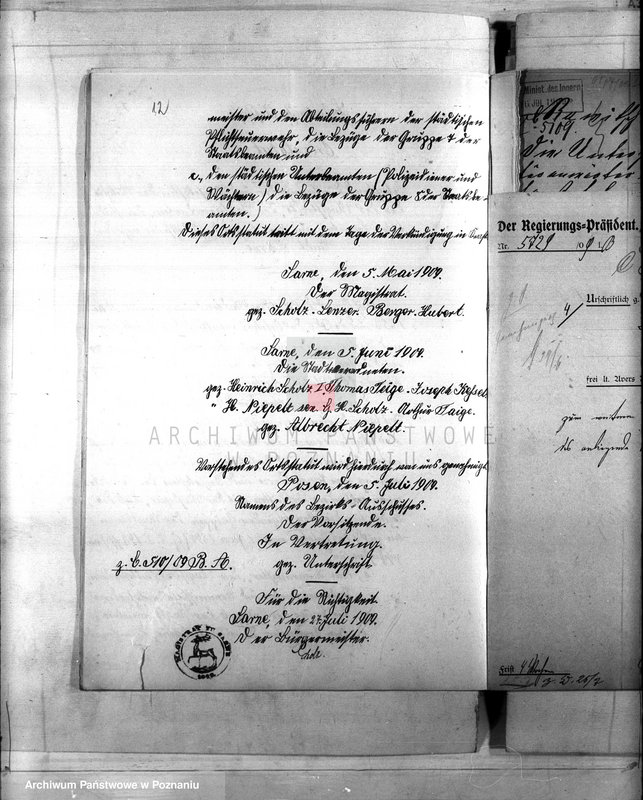 12
meister und den Abteilungsführern der städtischen
Pflichtfeuerwehr, die Bezüge der Gruppe 7 der
Staatsbeamten und
c., den städtischen Unterbeamten (Polizeidiener und
Wächtern) die Bezüge der Gruppe 8 der Staatsbe-
amten.
Dieses Ortsstatut tritt mit dem Tage der Verkündigung in Kraft
Sarne, den 5. Mai 1909.
Der Magistrat.
gez. Scholz. Lenzer. Berger. Hubert.
Sarne, den 5. Juni 1909.
Die Stadtverordneten.
gez. Heinrich Scholz I. Thomas Feige. Joseph
" H. Niepelt sen. H. Scholz. Arthur Taige.
gez. Albrecht Niepelt.
Vorstehendes Ortsstatut wird hierdurch von uns genehmigt
Posen, den 5. Juli 1909.
Namens des Bezirks-Ausschusses.
Der Vorsitzende.
In Vertretung.
gez. Unterschrift
z. C. 510/09 B. A.
Für die Richtigkeit
Sarne, den 27. Juli 1909.
Der Bürgermeister.
Scholz
MAGISTRAT ZU SARNE
ARCHIWUM PAŃSTWOWE
W POZNANIU
Minist. des Innern
5109.
Die Unter
Der Regierungs-Präsident.
Nr. 5729 /09 I B
Urschriftlich g.
frei lt. Avers
zum
Frist 4 Wochen
Archiwum Państwowe w Poznaniu